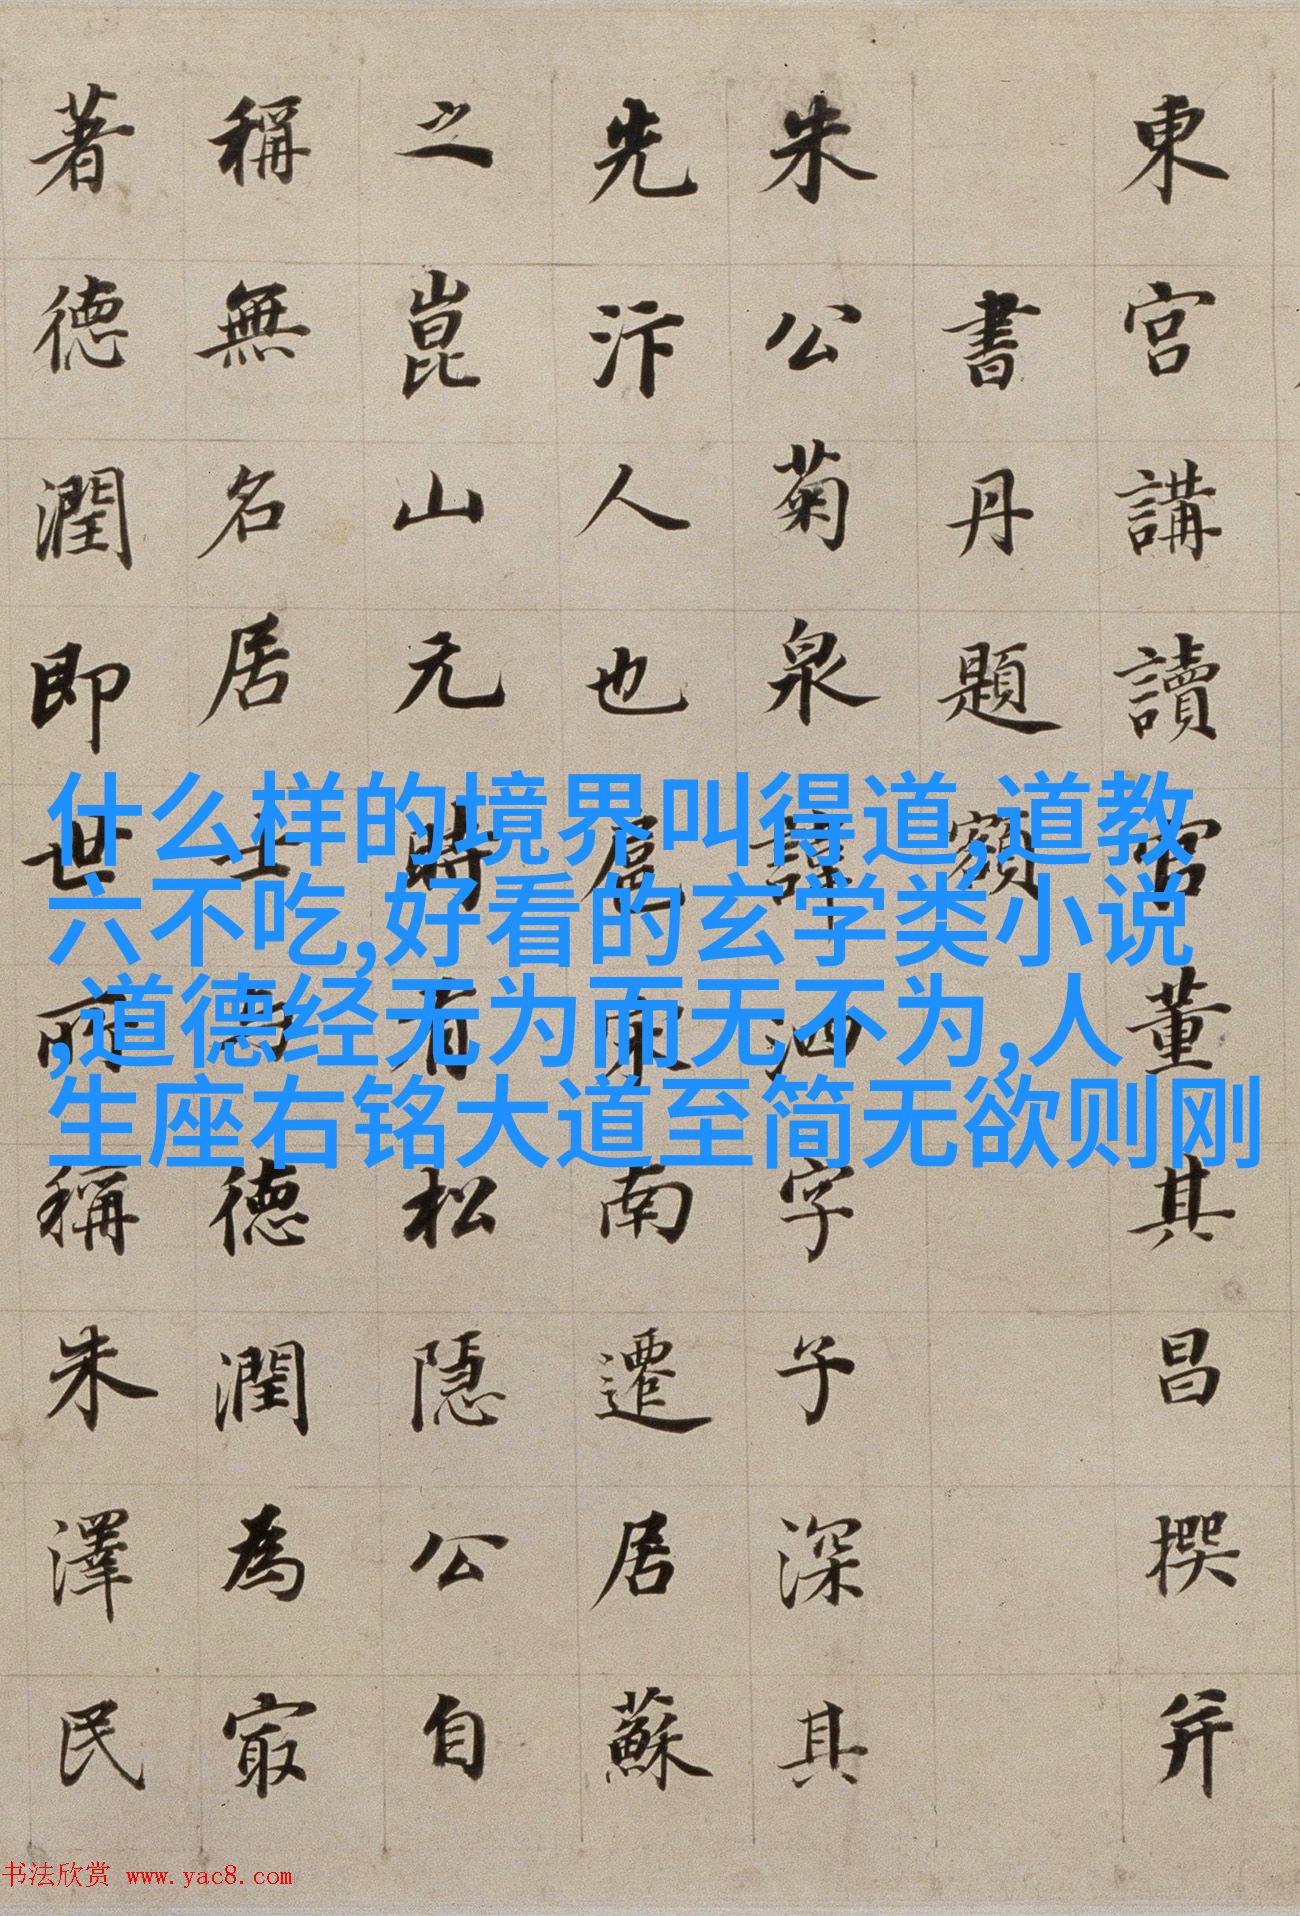 東宮講讀官董其昌撰并
書丹題額
朱公菊泉諱泗字子深其
先汴人也扈宋南遷居蘇
之崑山元時有松隱公自
稱無名居士德潤為㝡
著德潤即世所稱朱澤民
什么样的境界叫得道,道教
六不吃,好看的玄学类小说
,道德经无为而无不为,人
生座右铭大道至简无欲则刚
书法欣赏 www.yac8.com